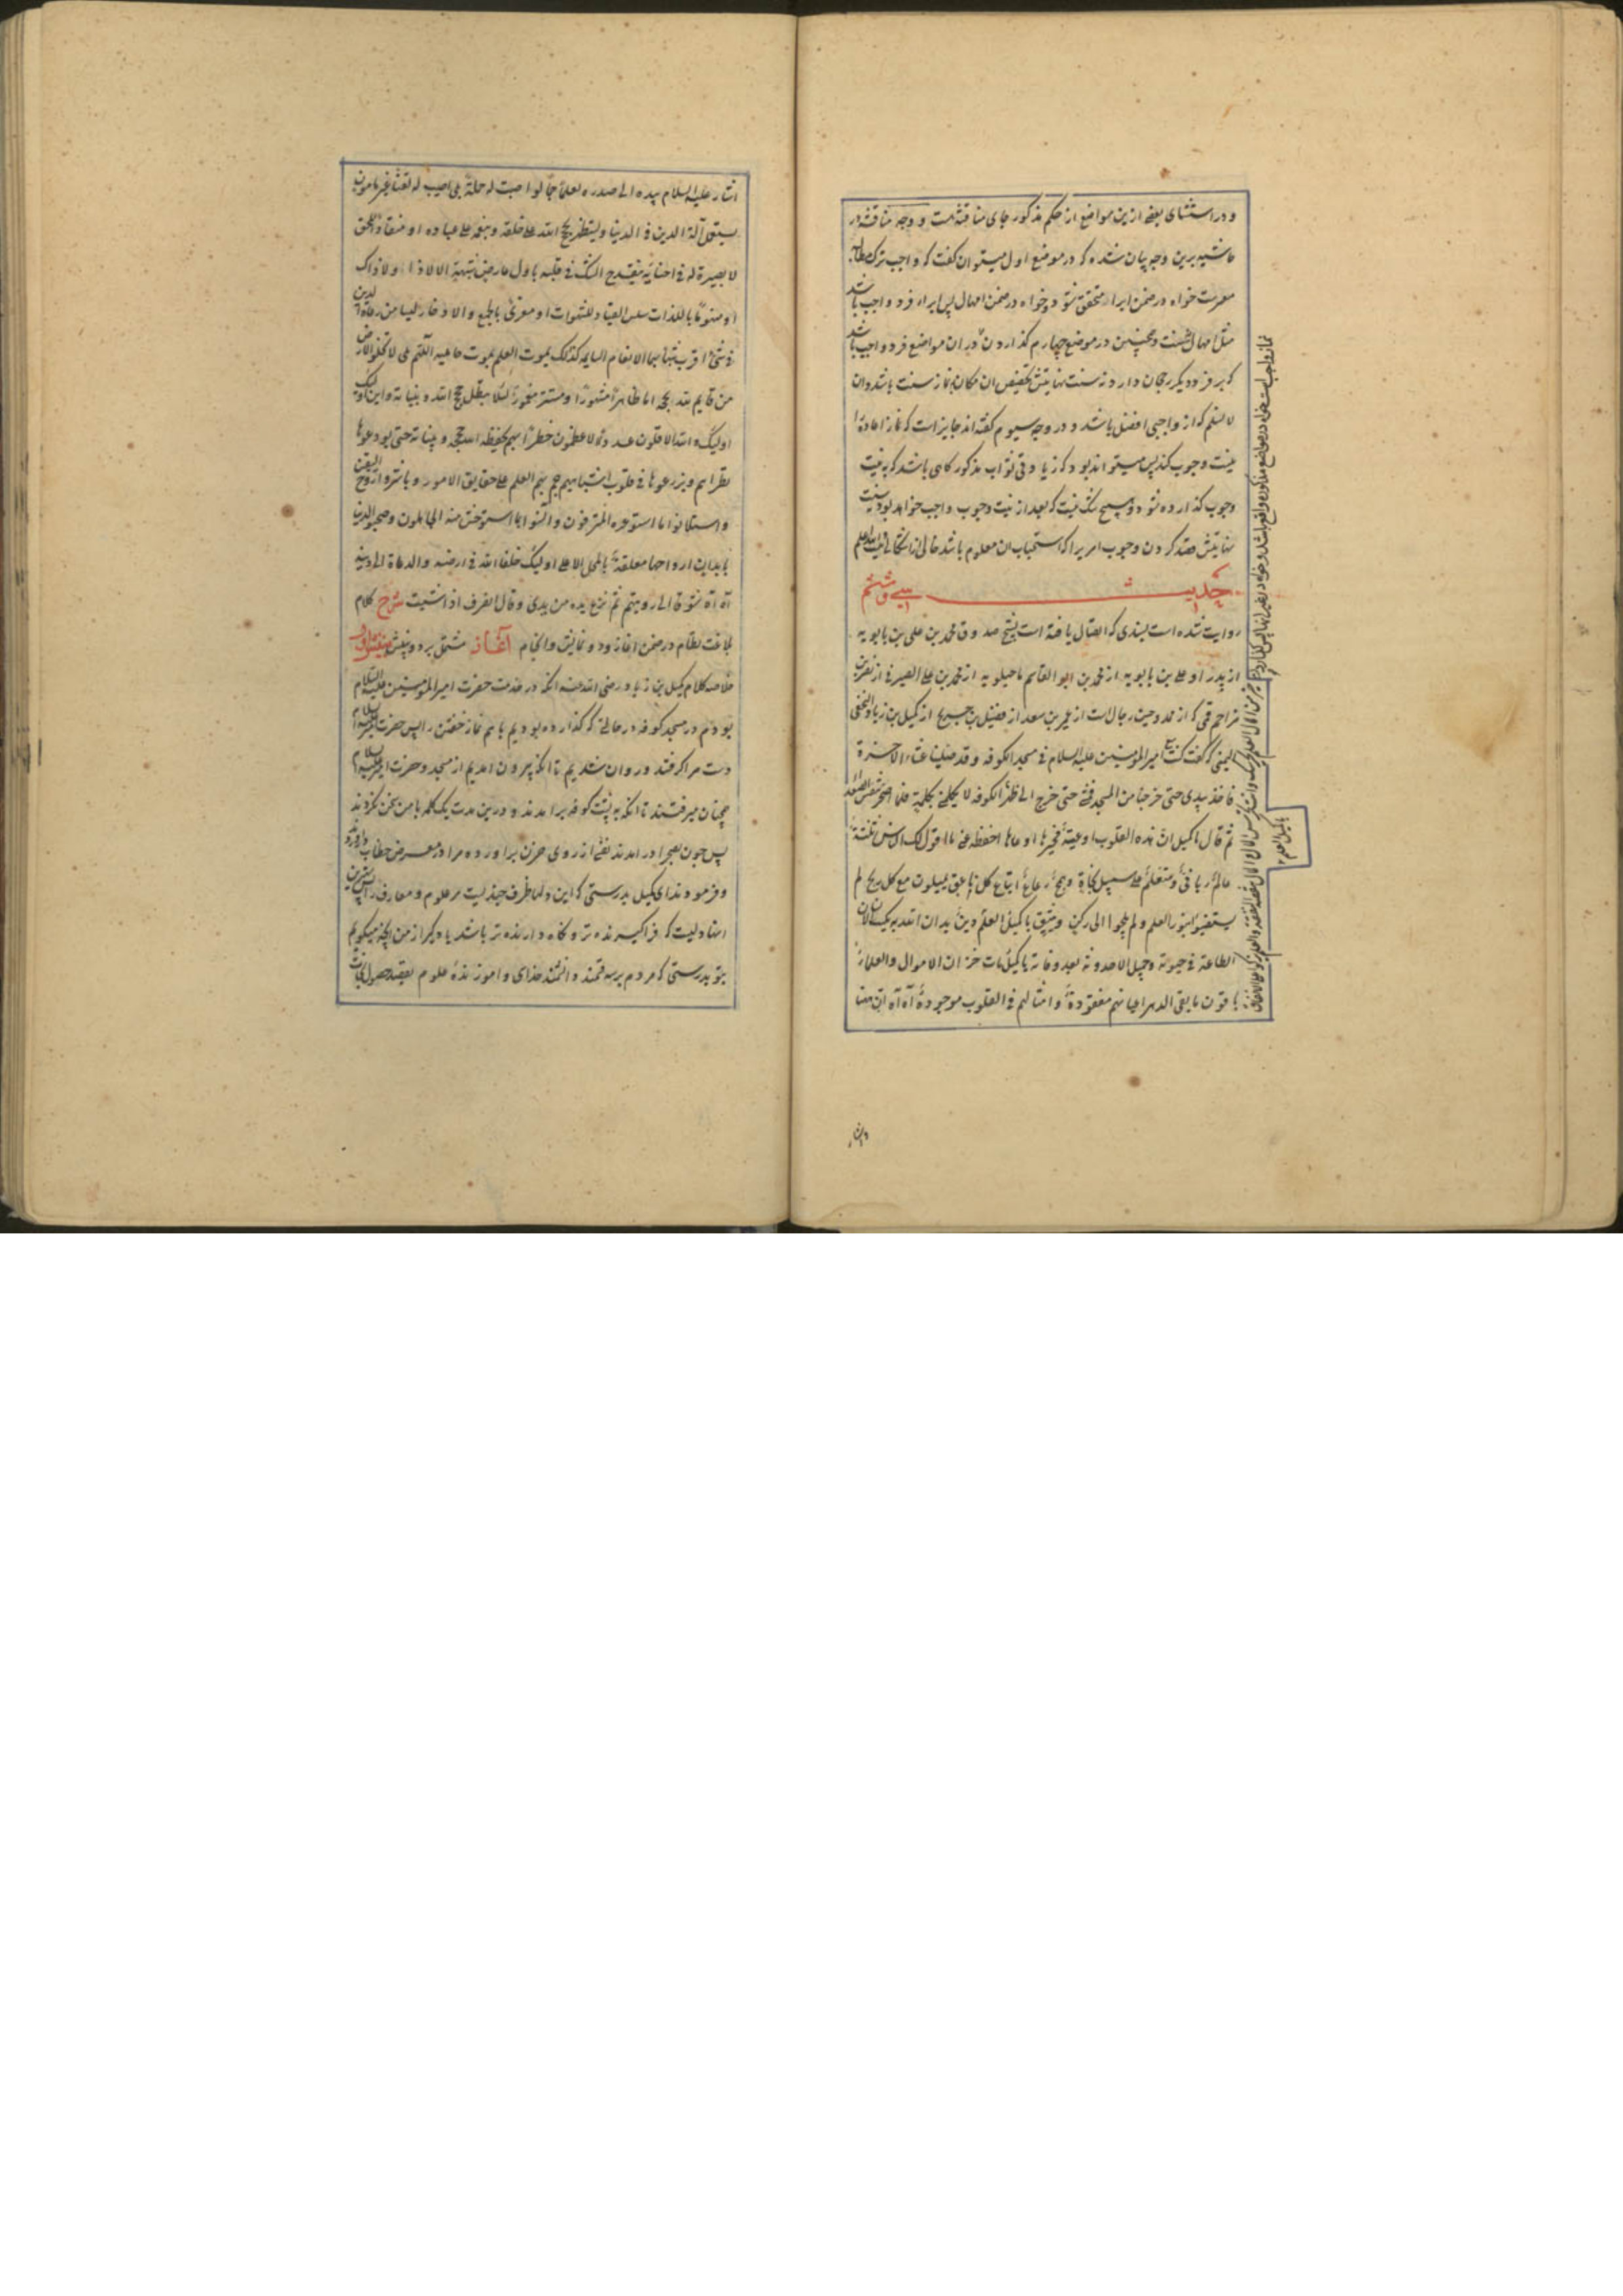 و در استثنای بعضی ازین مواضع از حکم مذکور جای مناقشه است و وجه مناقشه در
حاشیه برین وجه بیان شده که در موضع اول میتوان گفت که واجب ترک مطالبه
معسرست خواه در ضمن ابراء متحقق شود و خواه در ضمن امهال پس ابراء فرد واجب باشد
مثل امهال نه سنت و همچنین در موضع چهارم گذاردن در ان مواضع فرد واجب باشد
که بر فرد دیگر رجحان دارد نه سنت نهایتش تخصیص ان مکان بنماز سنت باشد و ان
لا نسلم که از واجبی افضل باشد و در وجه سیوم گفته اند جایز است که نماز اعاده را
بنیت وجوب کند پس میتواند بود که زیادتی ثواب مذکور گاهی باشد که به نیت
وجوب گذارده شود و هیچ شک نیست که بعد از نیت وجوب واجب خواهد بود نه سنت
نهایتش قصد کردن وجوب امریرا که استحباب ان معلوم باشد خالی از اشکالی نیست والله اعلم
حدیث سی و ششم
روایت شده است بسندی که اتصال یافته است بشیخ صدوق محمد بن علی بن بابویه
از پدر او علی بن بابویه از محمد بن ابو القاسم ماجیلویه از محمد بن علی الصیرفی از نصر بن
مزاحم قمی که از ممدوحین رجال است از عمر بن سعد از فضیل بن خدیج از کمیل بن زیاد النخعی
الیمنی که گفت کنت مع امیر المومنین علیه السلام فی مسجد الکوفه و قد صلینا عشاء الاخرة
فاخذ بیدی حتی خرجنا من المسجد فمشی حتی خرج الی ظهر الکوفه لا یکلمنی بکلمة فلما اصحر تنفس الصعداء
ثم قال یا کمیل ان هذه القلوب اوعیة فخیرها اوعاها احفظ عنی ما اقول لک الناس ثلثة
عالم ربانی و متعلم علی سبیل نجاة و همج رعاع اتباع کل ناعق یمیلون مع کل ریح لم
یستضیئوا بنور العلم و لم یلجوا الی رکن وثیق یا کمیل العلم دین یدان الله به یکسب الانسان
الطاعة فی حیوته و جمیل الاحدوثه بعد وفاته یا کمیل مات خزان الاموال و العلماء
باقون ما بقی الدهر اعیانهم مفقودة و امثالهم فی القلوب موجودة آه آه ان ههنا
یا کمیل العلم
اشار علیه السلام بیده الی صدره لعلما جما لو اصبت له حملة بلی اصیب له لقنا غیر مامون
یستعمل آلة الدین فی الدنیا و یستظهر بحج الله علی خلقه و بنعمه علی عباده او منقادا للحق
لا بصیرة له فی احنائه ینقدح الشک فی قلبه باول عارض من شبهة الا لا ذا و لا ذاک
او منهوما باللذات سلس القیاد للشهوات او مغری بالجمع و الادخار لیسا من رعاة الدین
فی شیء اقرب شبها بهما الانعام السایمه کذلک یموت العلم بموت حاملیه اللهم بلی لا تخلو الارض
من قایم لله بحجه اما ظاهرا مشهورا او مستتر مغمورا لئلا یبطل حجج الله و بیناته و این اولئک
اولیک والله الاقلون عددا الاعظمون خطرا بهم یحفظ الله حججه و بیناته حتی یودعوها
نظراهم و یزرعوها فی قلوب اشباههم هجم بهم العلم علی حقایق الامور و باشروا روح الیقین
و استلانوا ما استوعره المترفون و انسوا بما استوحش منه الجاهلون و صحبوا الدنیا
بابدان ارواحها معلقة بالمحل الاعلی اولیک خلفاء الله فی ارضه و الدعاة الی دینه
آه آه شوقا الی رویتهم ثم نزع یده من یدی و قال انصرف اذا شیت شرح کلام
بلاغت نظام در ضمن اغاز و دو نمایش و انجام آغاز مشتمل بر دو بینش بینش اول
خلاصه کلام کمیل بن زیاد رضی الله عنه انکه در خدمت حضرت امیر المومنین علیه السلام
بودم در مسجد کوفه در حالتی که گذارده بودیم باهم نماز خفتن را پس حضرت امیر علیه السلام
دست مرا گرفتند و روان شدیم تا انکه بیرون امدیم از مسجد و حضرت امیر علیه السلام
همچنان میرفتند تا انکه به پشت کوفه برامدند و درین مدت یک کلمه با من سخن نکردند
پس چون بصحرا درامدند نفسی از روی حزن براورده مرا در معرض خطاب دراوردند
و فرمودند ای کمیل بدرستی که این دلها ظرف چندیست مر علوم و معارف را پس بهترین
اینها دلیست که فراگیرنده تر و نگاه دارنده تر باشد یاد گیر از من انچه میگویم
بتو بدرستی که مردم بر سه قسمند دانشمند خدای و اموزنده علوم بقصد حصول نجات